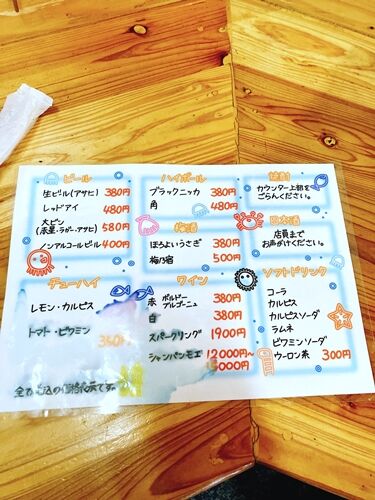 ビール
生ビール(アサヒ) 380円
レッドアイ 480円
大ビン
(赤星・ラガー・アサヒ) 580円
ノンアルコールビール 400円
ハイボール
ブラックニッカ 380円
角 480円
梅酒
ほろよいうさぎ 380円
梅乃宿 500円
焼酎
カウンター上部を
ごらんください。
日本酒
店員まで
お声がけください。
チューハイ
レモン・カルピス
トマト・ビタミン 350円
ワイン
赤 ボルドー
ブルゴーニュ 380円
白 380円
スパークリング 1900円
シャンパンモエ 12000円~
15000円
ソフトドリンク
コーラ
カルピス
カルピスソーダ
ラムネ
ビタミンソーダ
ウーロン茶 300円
全て税込の価格表示です。